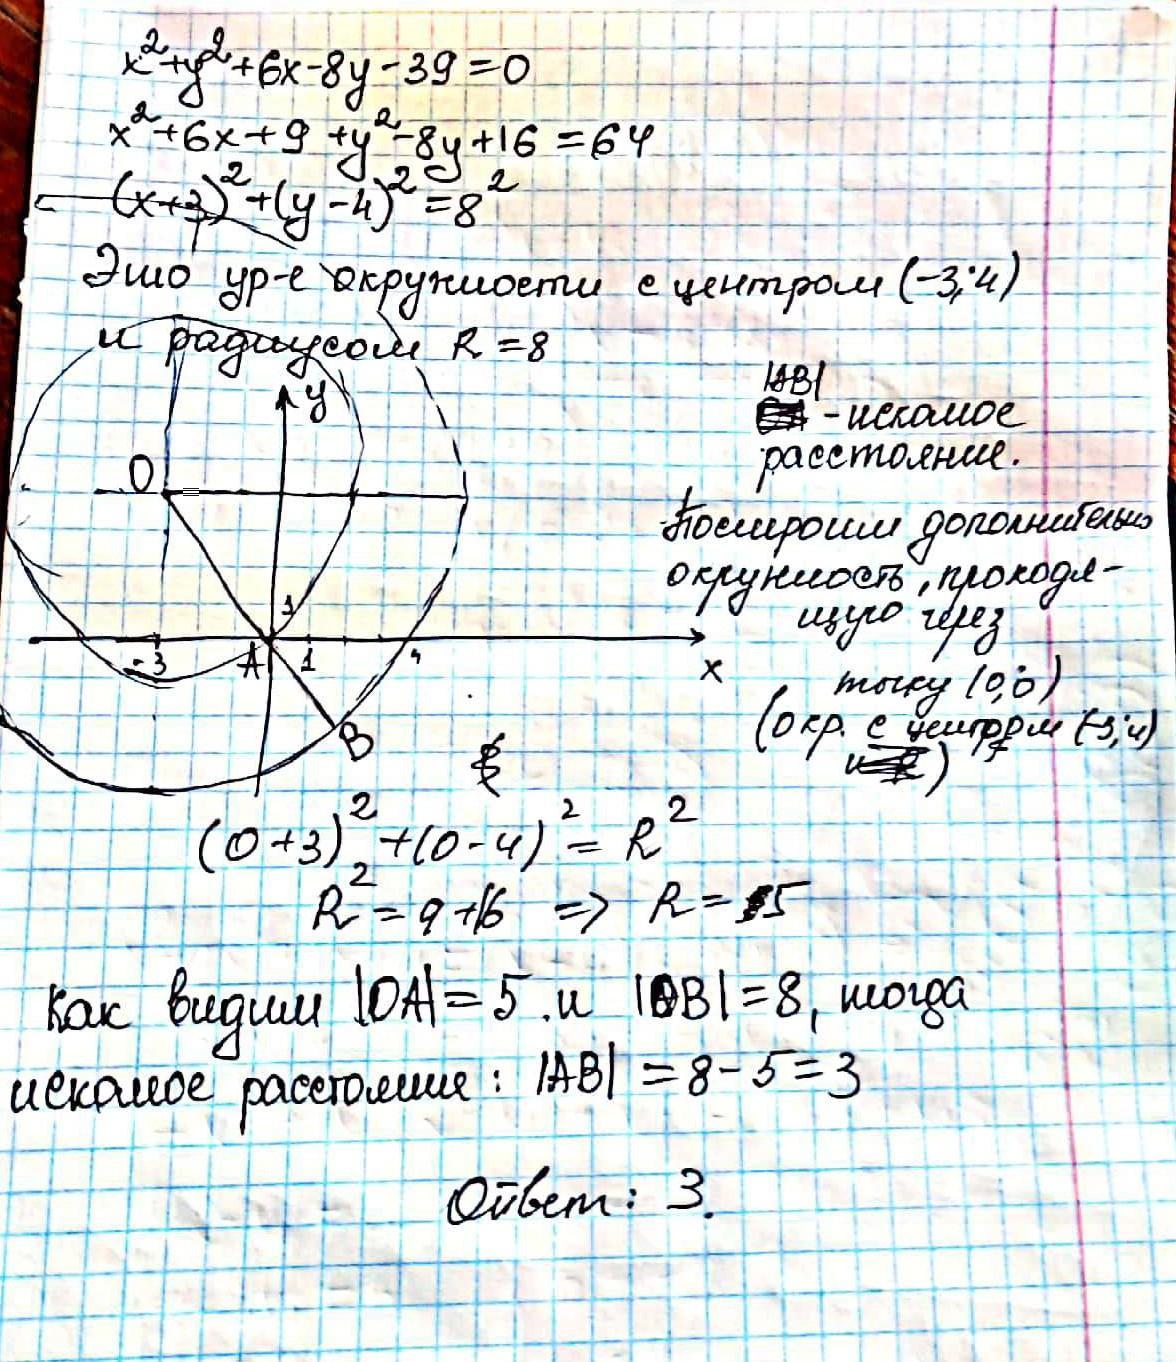 x²+y²+6x-8y-39=0
x²+6x+9+y²-8y+16=64
(x+3)²+(y-4)²=8²
Это ур-е окружности с центром (-3;4)
и радиусом R=8
y
|AB|
- искомое
расстояние.
O
Построим дополнительно
окружность, проходя-
щую через
точку (0;0)
(окр. с центром (-3;4)
)
1
-3 A 1 4 x
B
(0+3)²+(0-4)²=R²
R²=9+16 => R=5
Как видим |OA|=5 и |OB|=8, тогда
искомое расстояние: |AB|=8-5=3
Ответ: 3.